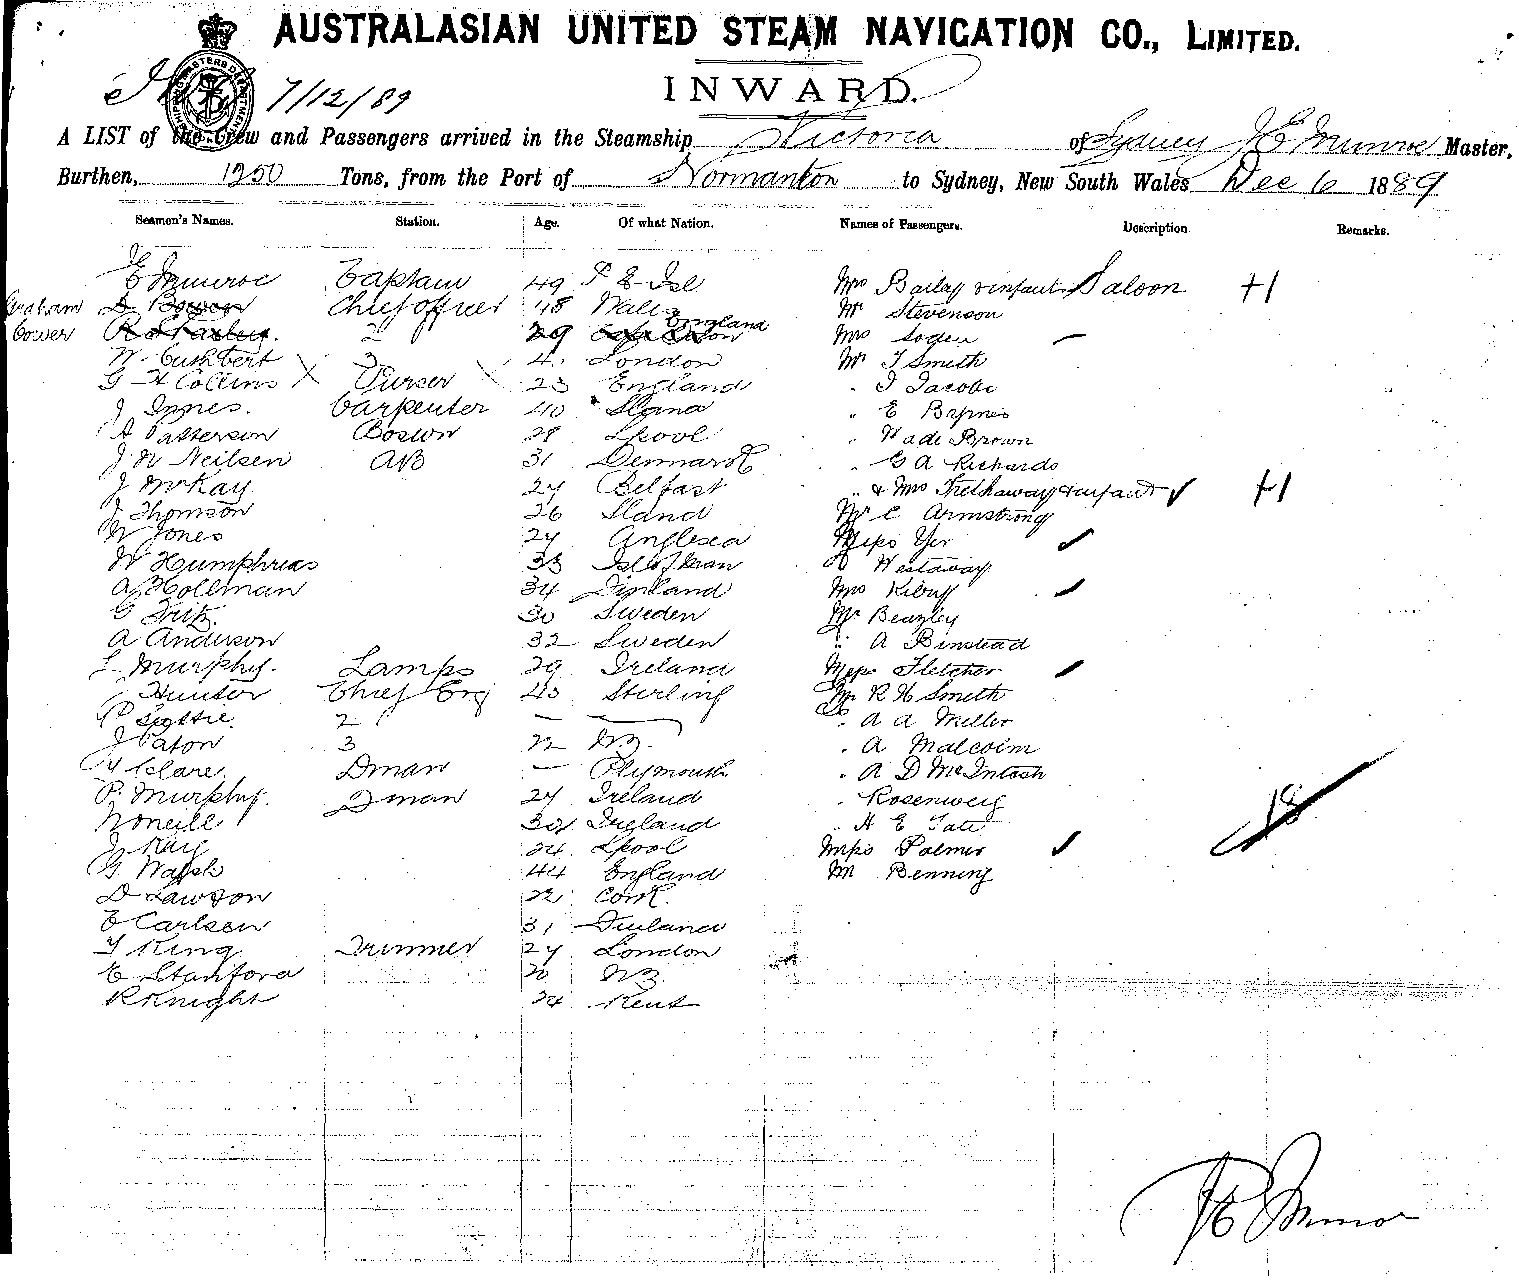 AUSTRALASIAN UNITED STEAM NAVIGATION CO., LIMITED.
7/12/89
INWARD.
A LIST of the Crew and Passengers arrived in the Steamship Victoria of Sydney J E Munroe Master,
Burthen, 1250 Tons, from the Port of Normanton to Sydney, New South Wales Dec 6 1889
Seamen's Names. Station. Age. Of what Nation. Names of Passengers. Description. Remarks.
J E Munroe Captain 49 P E Isl Mrs Bailey & infant Saloon +1
Graham D Bowen Chief Officer 48 Wales Mr Stevenson
Cower 2 29 England Mrs Soden
W Cuthbert 3 London Mr T Smith
G H Collins Purser 23 England " J Jacobs
J Innes. Carpenter 40 " E Byrnes
A Patterson Boswn 28 Lpool " Wade Brown
J W Neilsen AB 31 Denmark " G A Richards
J McKay 27 Belfast " & Mrs Trethaway & infant +1
J Thomson 26 Mr C Armstrong
W Jones 27 Anglesea Miss Yer
W Humphries 33 Isl of Man " Westaway
A Hollman 34 Finland Mrs Kibuy
G Fritz. 30 Sweden Mr Beazley
A Anderson 32 Sweden " A Binstead
L Murphy. Lamps 29 Ireland Miss Fletcher
Hunter Chief Eng 43 Sterling Mr R H Smith
P 2 — " A A Miller
J Paton 3 22 NZ. " A Malcolm
Clare. Dman — Plymouth " A D McIntosh
P. Murphy. Fman 27 Ireland " Rosenweig
W Oneill 32 Ireland " H E Tate 18
J Kay 24 Lpool Miss Palmer
G Walsh 44 England Mr Benning
D Lawson 22 Cork.
E Carlsen 31 Finland
T King Trimmer 27 London
E Stanford 20 NZ
R Knight 24 Kent
J E Munroe